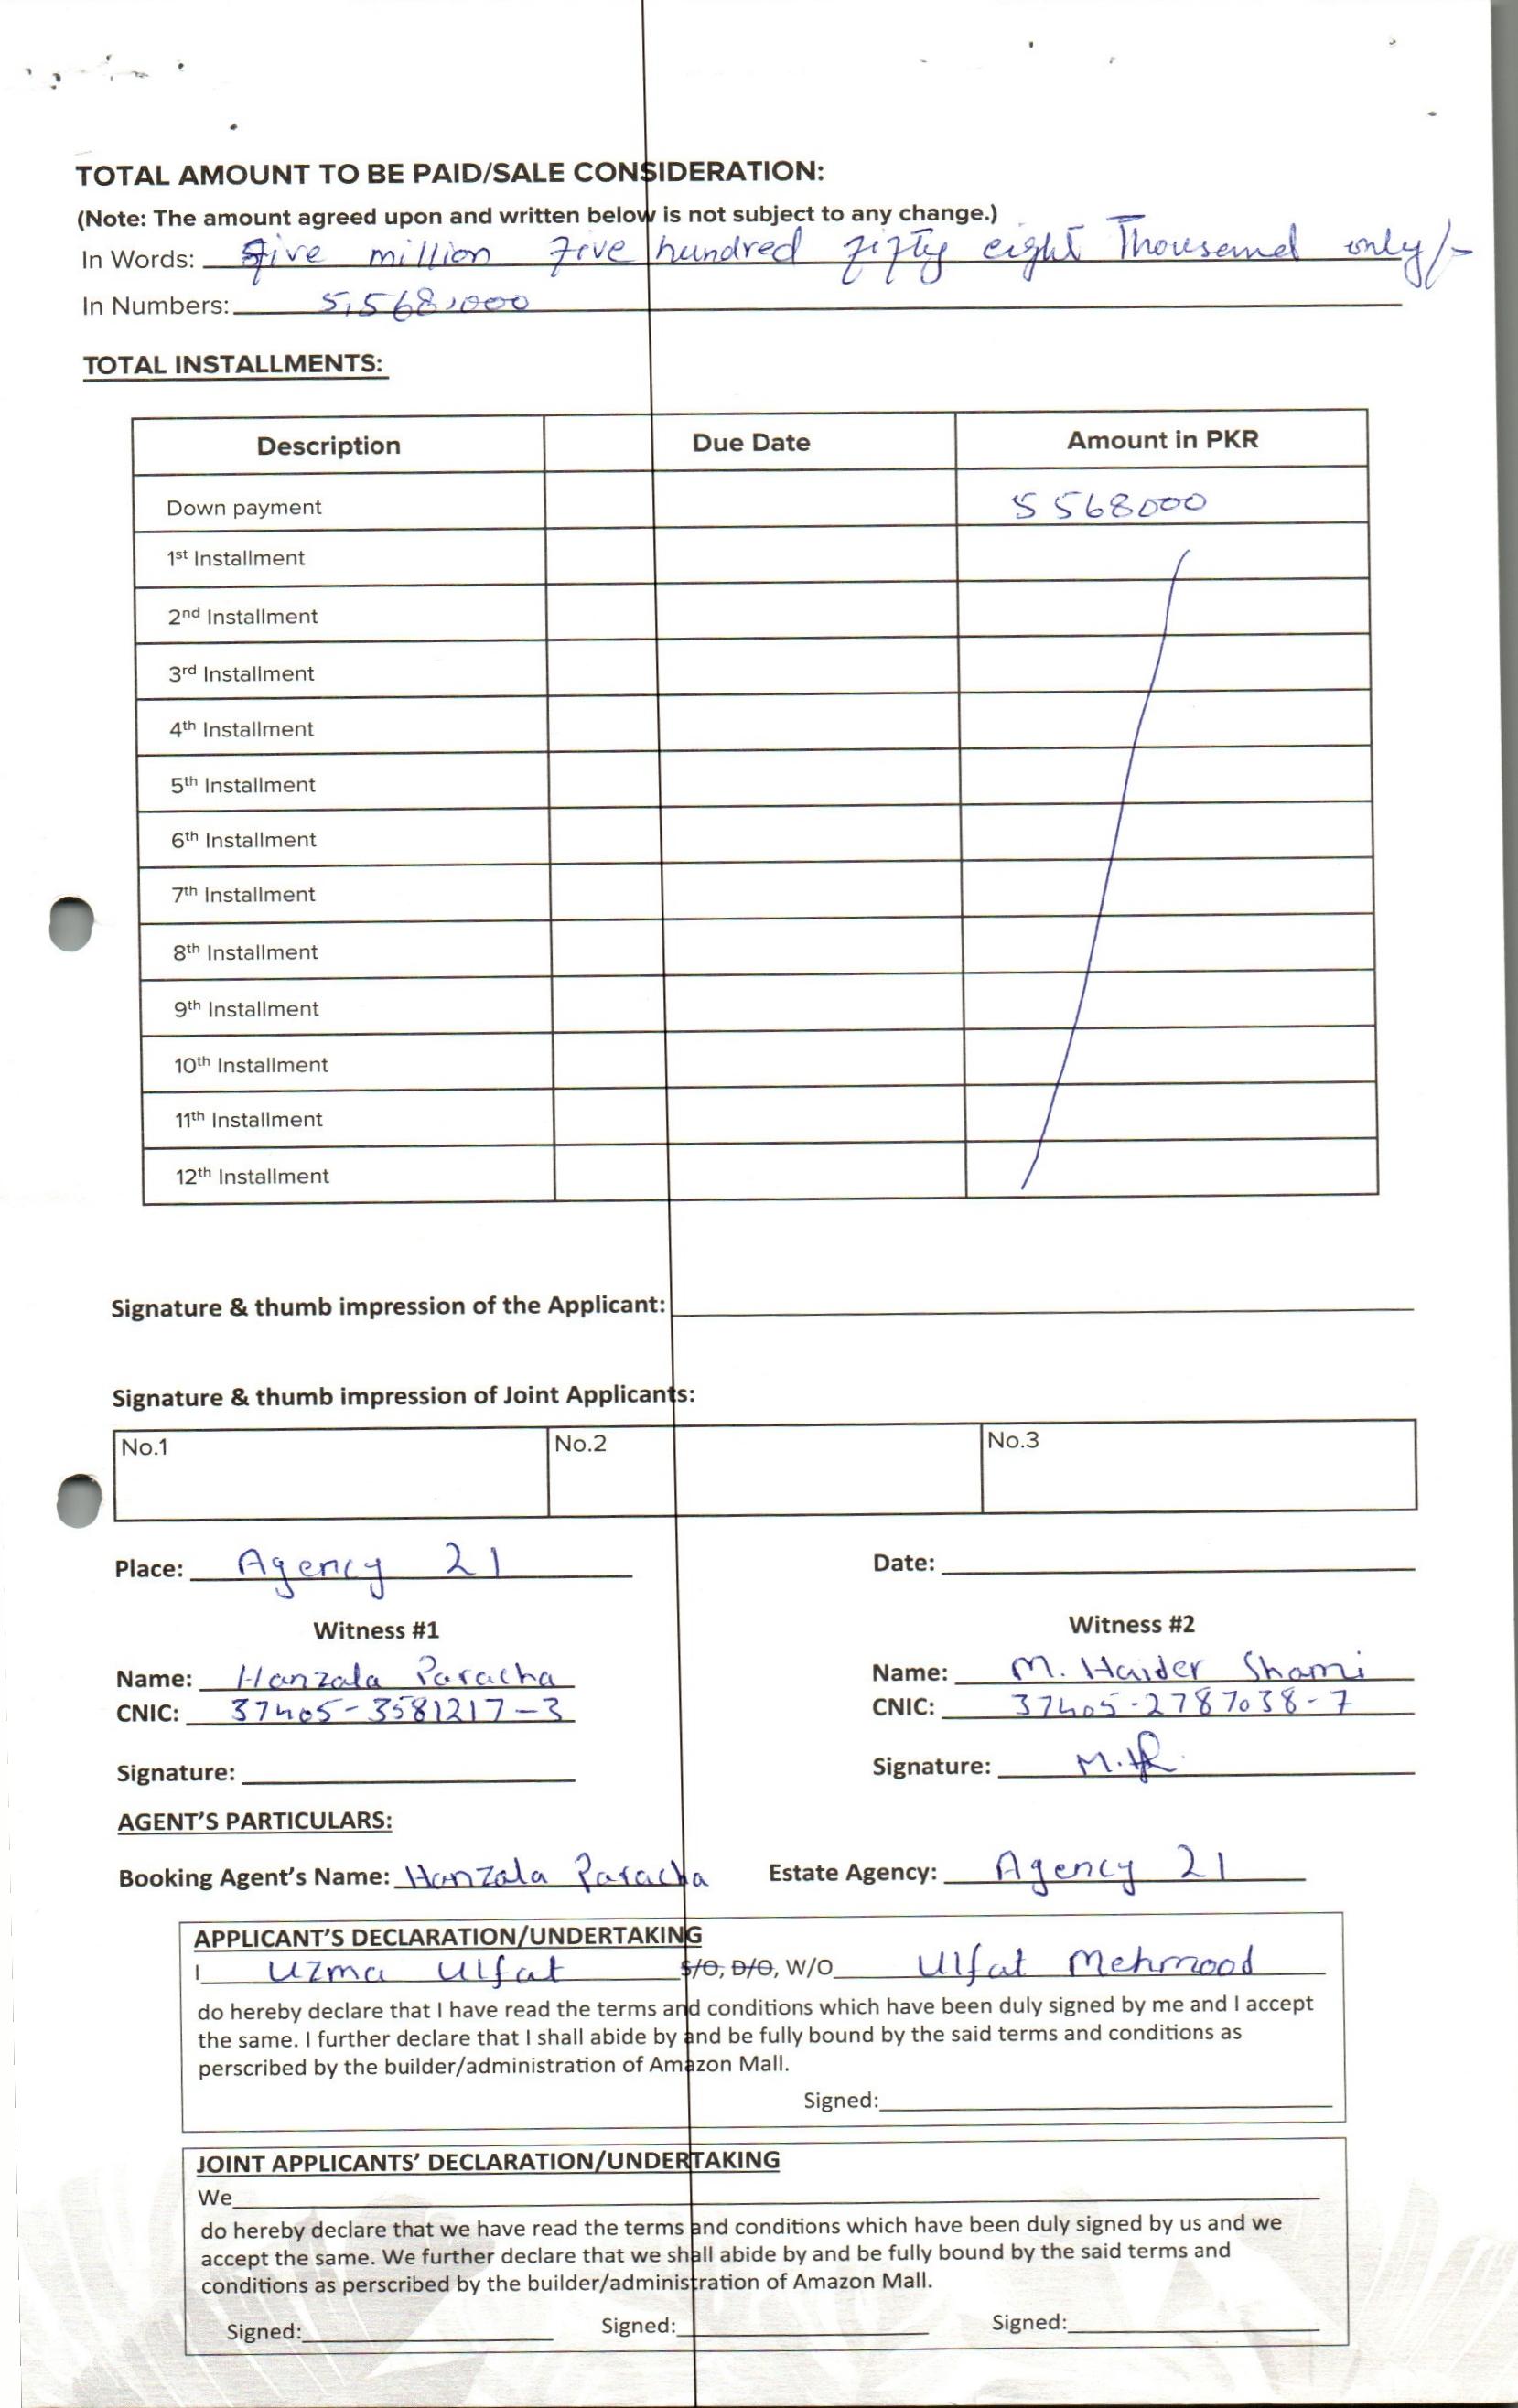 TOTAL AMOUNT TO BE PAID/SALE CONSIDERATION:
(Note: The amount agreed upon and written below is not subject to any change.)
In Words: Five million Five hundred fifty eight Thousand only/-
In Numbers: 5,568,000
TOTAL INSTALLMENTS:
Description Due Date Amount in PKR
Down payment 5568000
1st Installment
2nd Installment
3rd Installment
4th Installment
5th Installment
6th Installment
7th Installment
8th Installment
9th Installment
10th Installment
11th Installment
12th Installment
Signature & thumb impression of the Applicant:
Signature & thumb impression of Joint Applicants:
No.1 No.2 No.3
Place: Agency 21 Date:
Witness #1 Witness #2
Name: Hanzala Paracha Name: M. Haider Shami
CNIC: 37405-3581217-3 CNIC: 37405-2787038-7
Signature: Signature:
AGENT'S PARTICULARS:
Booking Agent's Name: Hanzala Paracha Estate Agency: Agency 21
APPLICANT'S DECLARATION/UNDERTAKING
I Uzma Ulfat S/O, D/O, W/O Ulfat Mehmood
do hereby declare that I have read the terms and conditions which have been duly signed by me and I accept
the same. I further declare that I shall abide by and be fully bound by the said terms and conditions as
perscribed by the builder/administration of Amazon Mall.
Signed:
JOINT APPLICANTS' DECLARATION/UNDERTAKING
We
do hereby declare that we have read the terms and conditions which have been duly signed by us and we
accept the same. We further declare that we shall abide by and be fully bound by the said terms and
conditions as perscribed by the builder/administration of Amazon Mall.
Signed: Signed: Signed: